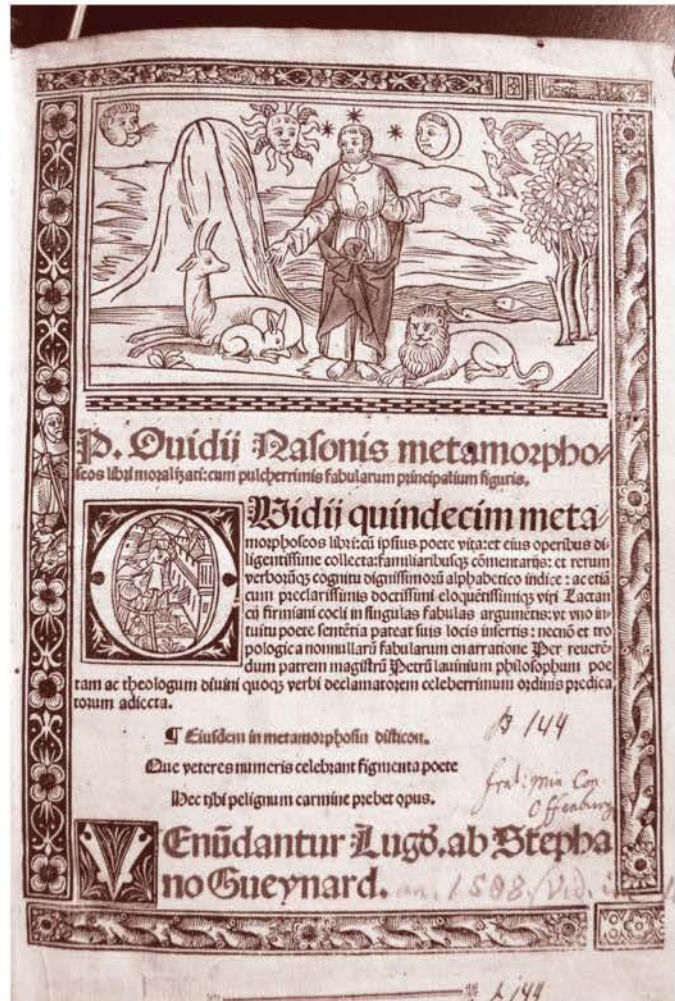 P. Ouidij Nasonis metamorpho⸗
ſeos libri moralizati: cum pulcherrimis fabularum principalium figuris.
OUidij quindecim meta⸗
morphoſeos libri: cū ipſius poete vita: et eius operibus di⸗
ligentiſſime collecta: familiaribuſqꝫ cōmentarijs: et rerum
verborūqꝫ cognitu digniſſimorū alphabetico indice: ac etiā
cum preclariſſimis doctiſſimi eloquētiſſimiqꝫ viri Lactan
tij firmiani coeli in ſingulas fabulas argumētis: vt vno in
tuitu poete ſentētia pateat ſuis locis inſertis: necnō et tro
pologica nonnullarū fabularum enarratione Per reuerē⸗
dum patrem magiſtrū Petrū lauinium philoſophum poe
tam ac theologum diuini quoqꝫ verbi declamatorem celeberrimum ordinis predica
torum adiecta.
B 144
¶ Eiuſdem in metamorphoſin diſticon.
Que veteres numeris celebrant figmenta poete
frat: Min Con
Offenburg
Hec tibi pelignum carmine prebet opus.
VEnūdantur Lugd. ab Stepha
no Gueynard.
an. 1508. Vid. in
L 144